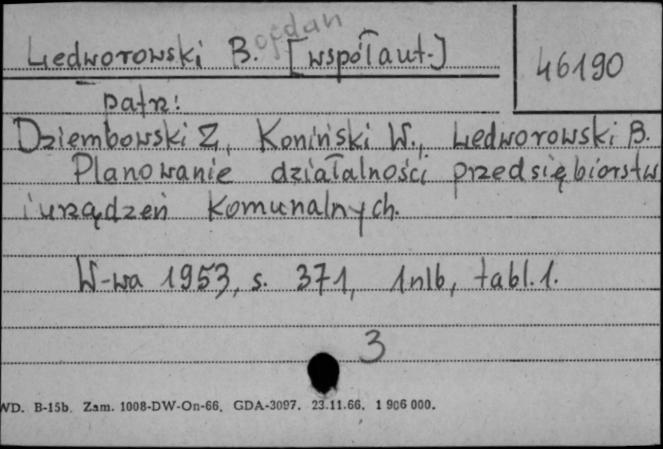 Ledworowski B.ogdan [współaut.]
46190
patrz:
Dziembowski Z., Koniński W., Ledworowski B.
Planowanie działalności przedsiębiorstw
i urządzeń komunalnych.
W-wa 1953, s. 371, 1nlb, tabl. 1.
3
WD. B-15b. Zam. 1008-DW-On-66. GDA-3097. 23.11.66. 1 906 000.